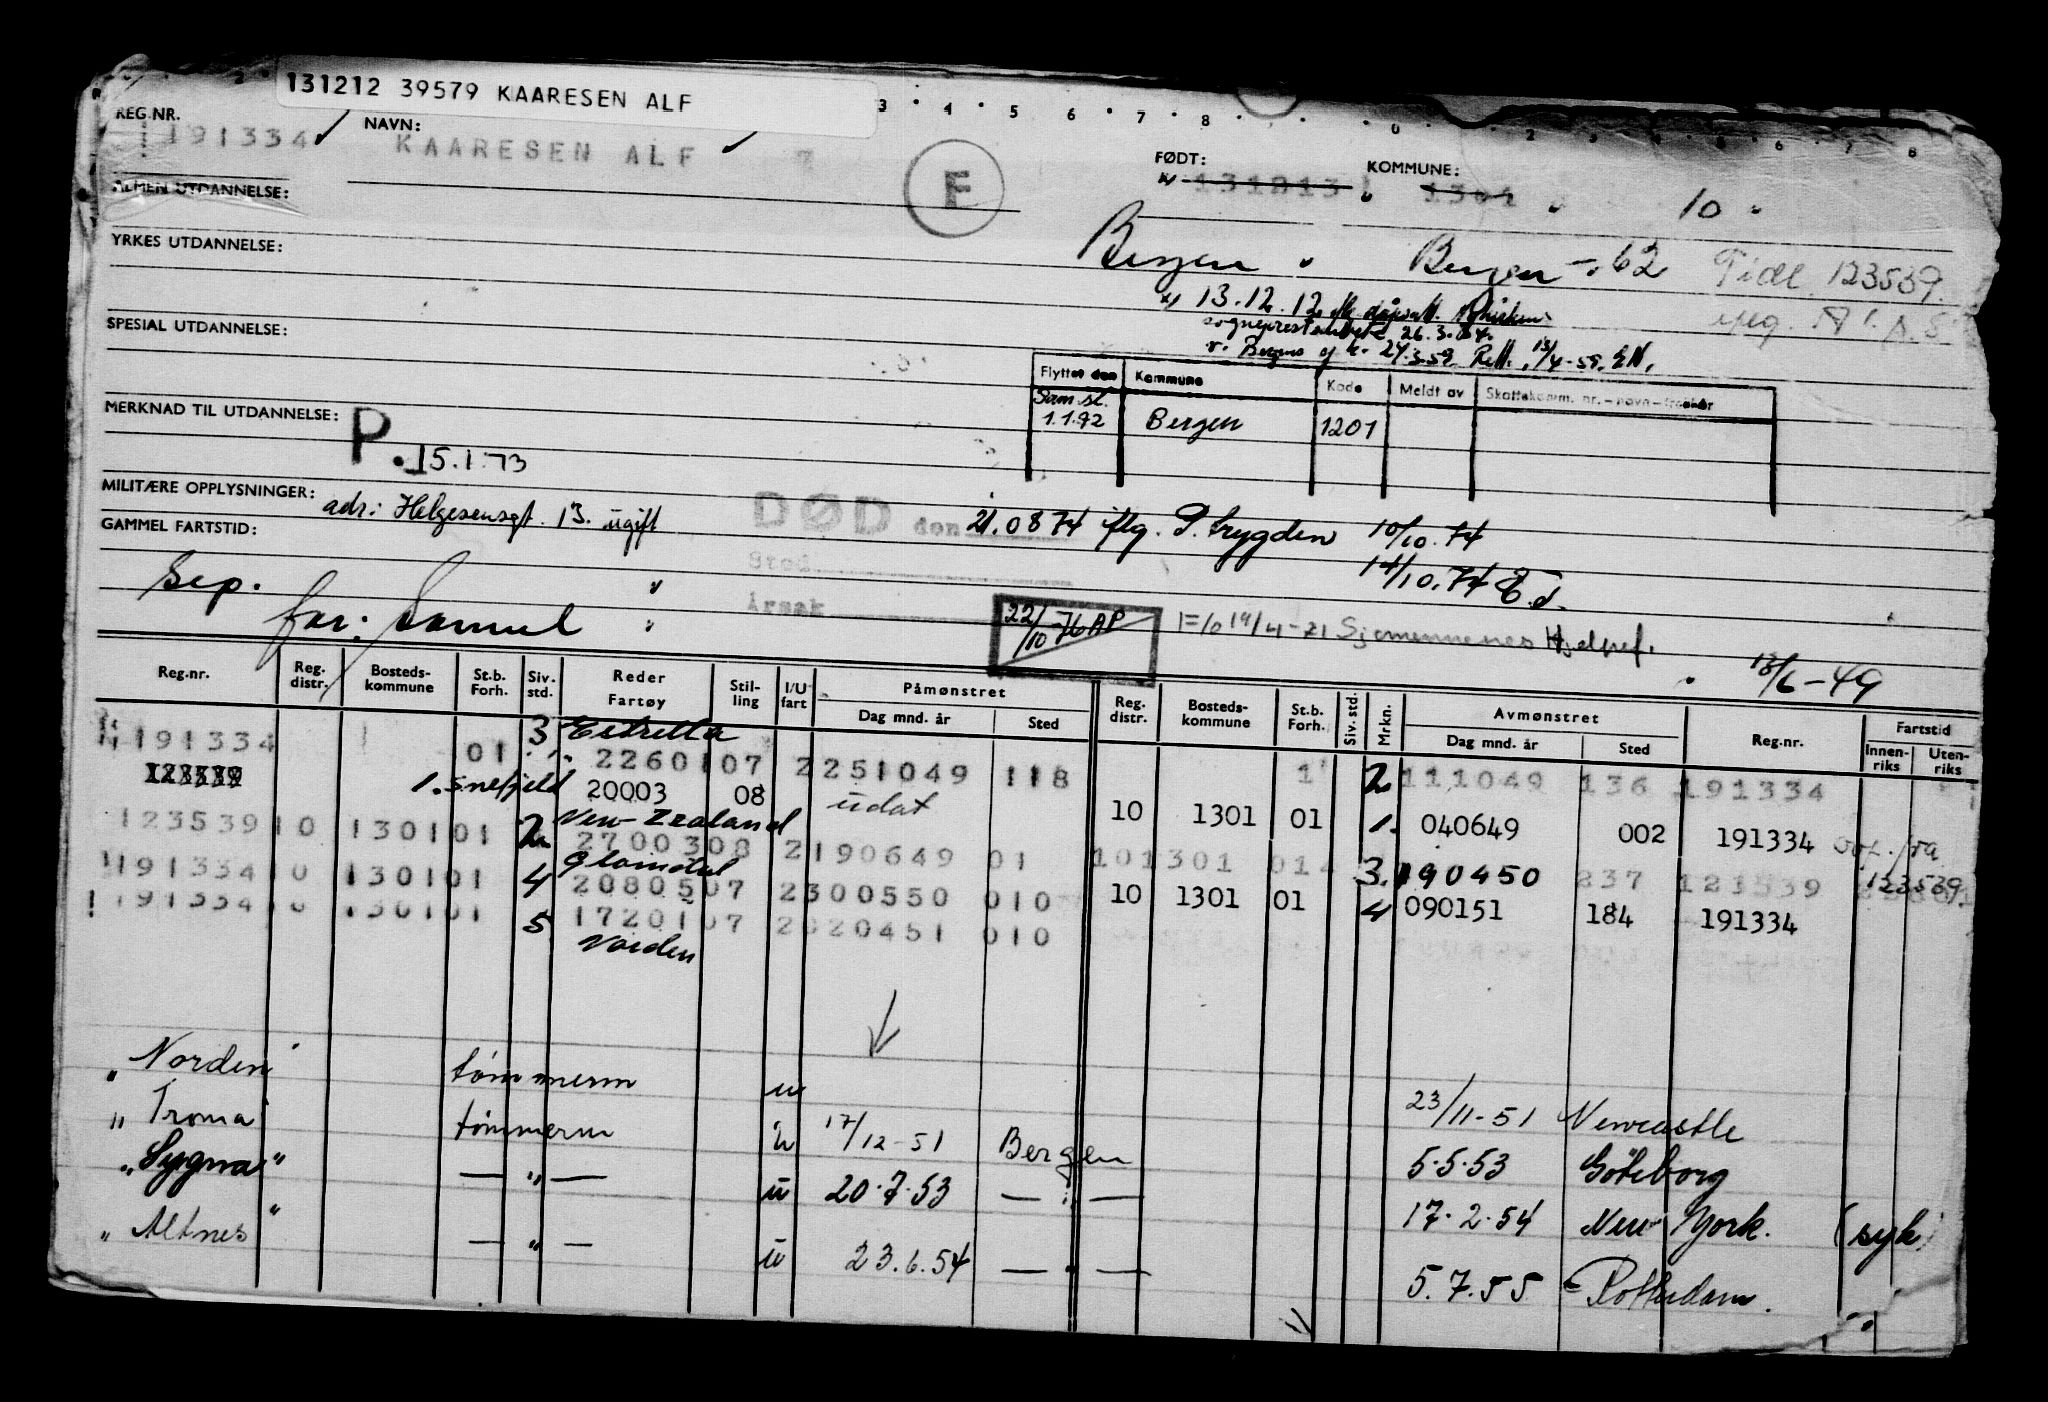 131212 39579 KAARESEN ALF
3 4 5 6 7 8 0 2 3 4 5 6 7 8
REG.NR. NAVN: FØDT: KOMMUNE:
191334 KAARESEN ALF 7 F 131213 1301 10
ALMEN UTDANNELSE:
YRKES UTDANNELSE: Bergen Bergen - 62 Tidl. 123539
13.12.12
SPESIAL UTDANNELSE: sogneprestembete 26.3.
24.3.59 Rett. 13/4-59.
Flyttet den Kommune Kode Meldt av Skattekomm. nr.-navn-fra år
Sam.sl.
1.1.72 Bergen 1201
MERKNAD TIL UTDANNELSE:
P. 15.1.73
MILITÆRE OPPLYSNINGER: adr: Helgesensgt. 13. ugift DØD den 21.0874 iflg. P. trygden 10/10.74
GAMMEL FARTSTID: Sted 14/10.74
Sep. Årsak
far: Samuel 22/10-76 AP Sjømennenes Hjelpef.
13/6-49
Reg.nr. Reg. distr. Bosteds-kommune St.b. Forh. Siv. std. Reder Fartøy Stil-ling I/U fart Påmønstret Dag mnd. år Sted Reg. distr. Bosteds-kommune St.b. Forh. Siv. std. Mrkn. Avmønstret Dag mnd. år Sted Reg.nr. Fartstid Innen-riks Uten-riks
191334 01 3 2260107 2 251049 118 1 2 111049 136 191334
123539 1. Snefjeld 20003 08 udat 10 1301 01 1. 040649 002 191334
123539 10 1301 01 2 New Zealand 2700308 2 190649 01 10 1301 01 3. 190450 237 123539 123539
191334 10 1301 01 4 Glomdal 2080507 2 300550 010 10 1301 01 4 090151 184 191334
191334 10 1301 01 5 1720107 2 020451 010
Norden
"Norden" tømmerm u 23/11-51 Newcastle
"Troma" tømmerm u 17/12-51 Bergen 5.5.53 Göteborg
"Sygna" — " — u 20.7.53 — " — 17.2.54 New York. (syk)
"Altnes" — " — u 23.6.54 — " — 5.7.55 Rotterdam.